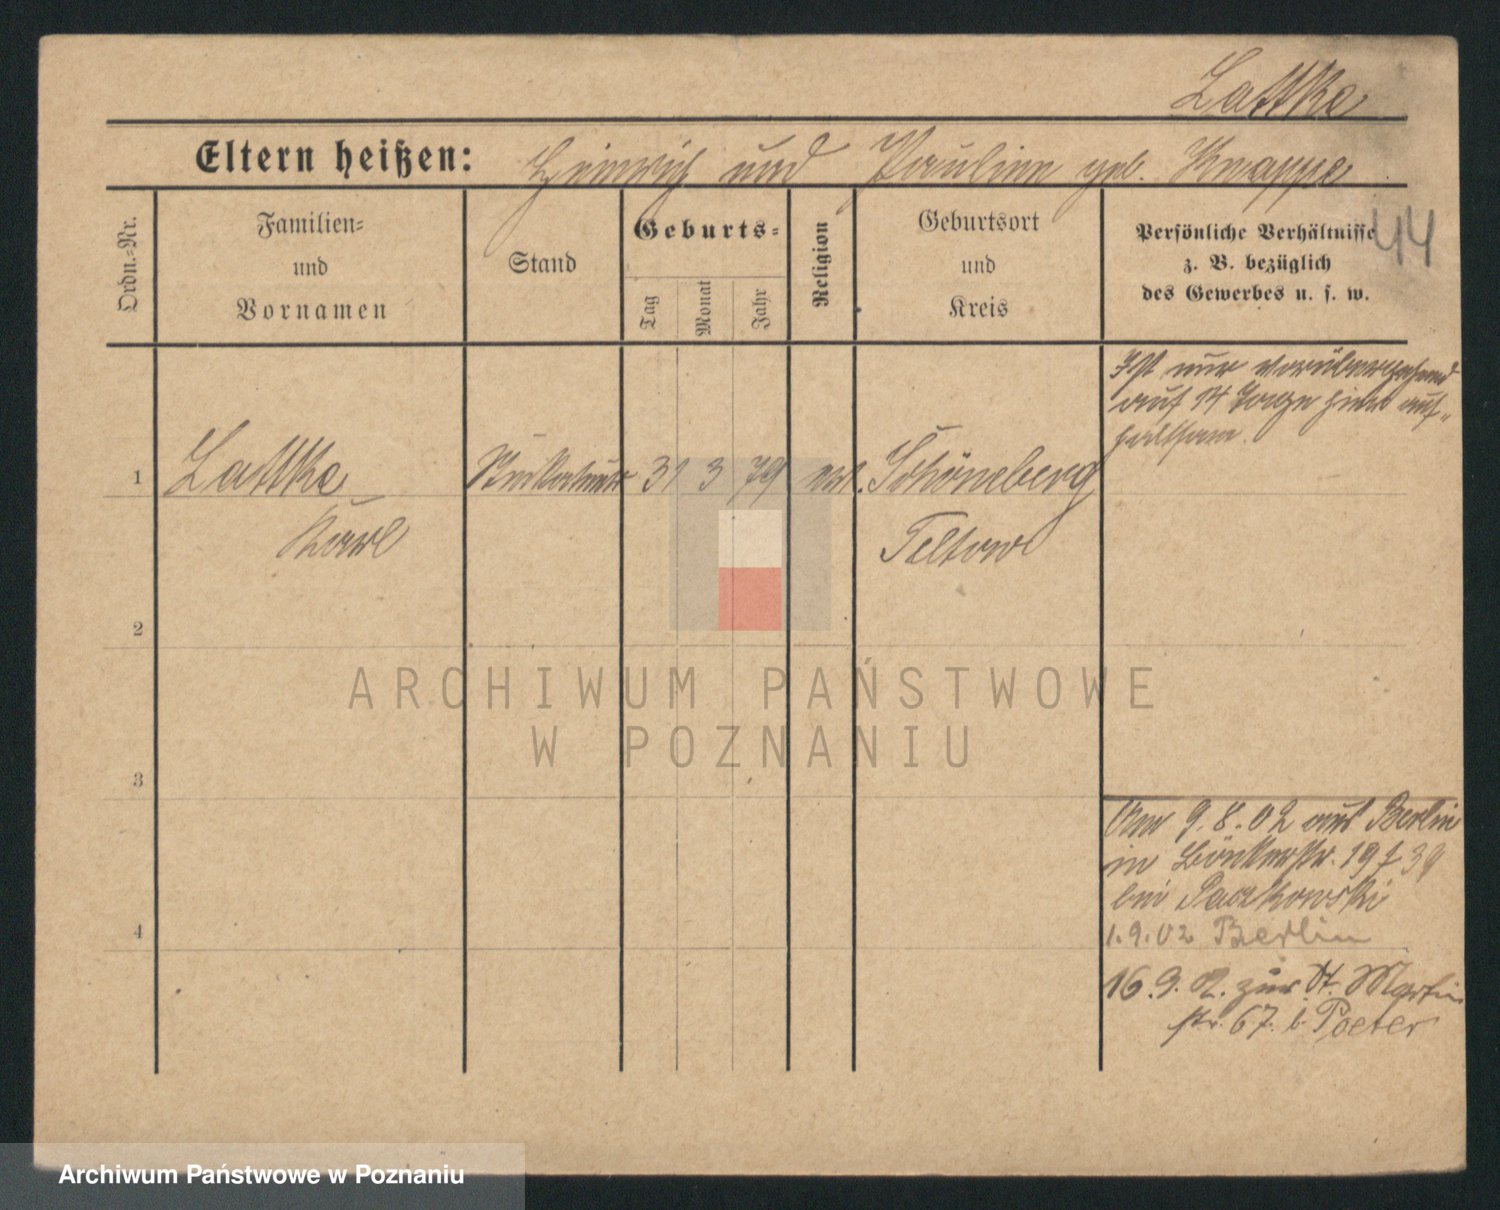 Lattke
Eltern heißen: Heinrich und Pauline geb. Knappe
44
Ordn.-Nr.
Familien-
und
Vornamen
Stand
Geburts-
Tag
Monat
Jahr
Religion
Geburtsort
und
Kreis
Persönliche Verhältnisse
z. B. bezüglich
des Gewerbes u. s. w.
Ist nur vorübergehend
auf 14 Tage hier auf-
haltsam
1 Lattke 31 3 79 evl. Schöneberg
Karl Teltow
2
3
4
Am 9.8.02 aus Berlin
in 19
bei Paczkowski
1.9.02 Berlin
16.9.02. zur St. Martin
str. 67. b. Poeter
ARCHIWUM PAŃSTWOWE
W POZNANIU
Archiwum Państwowe w Poznaniu